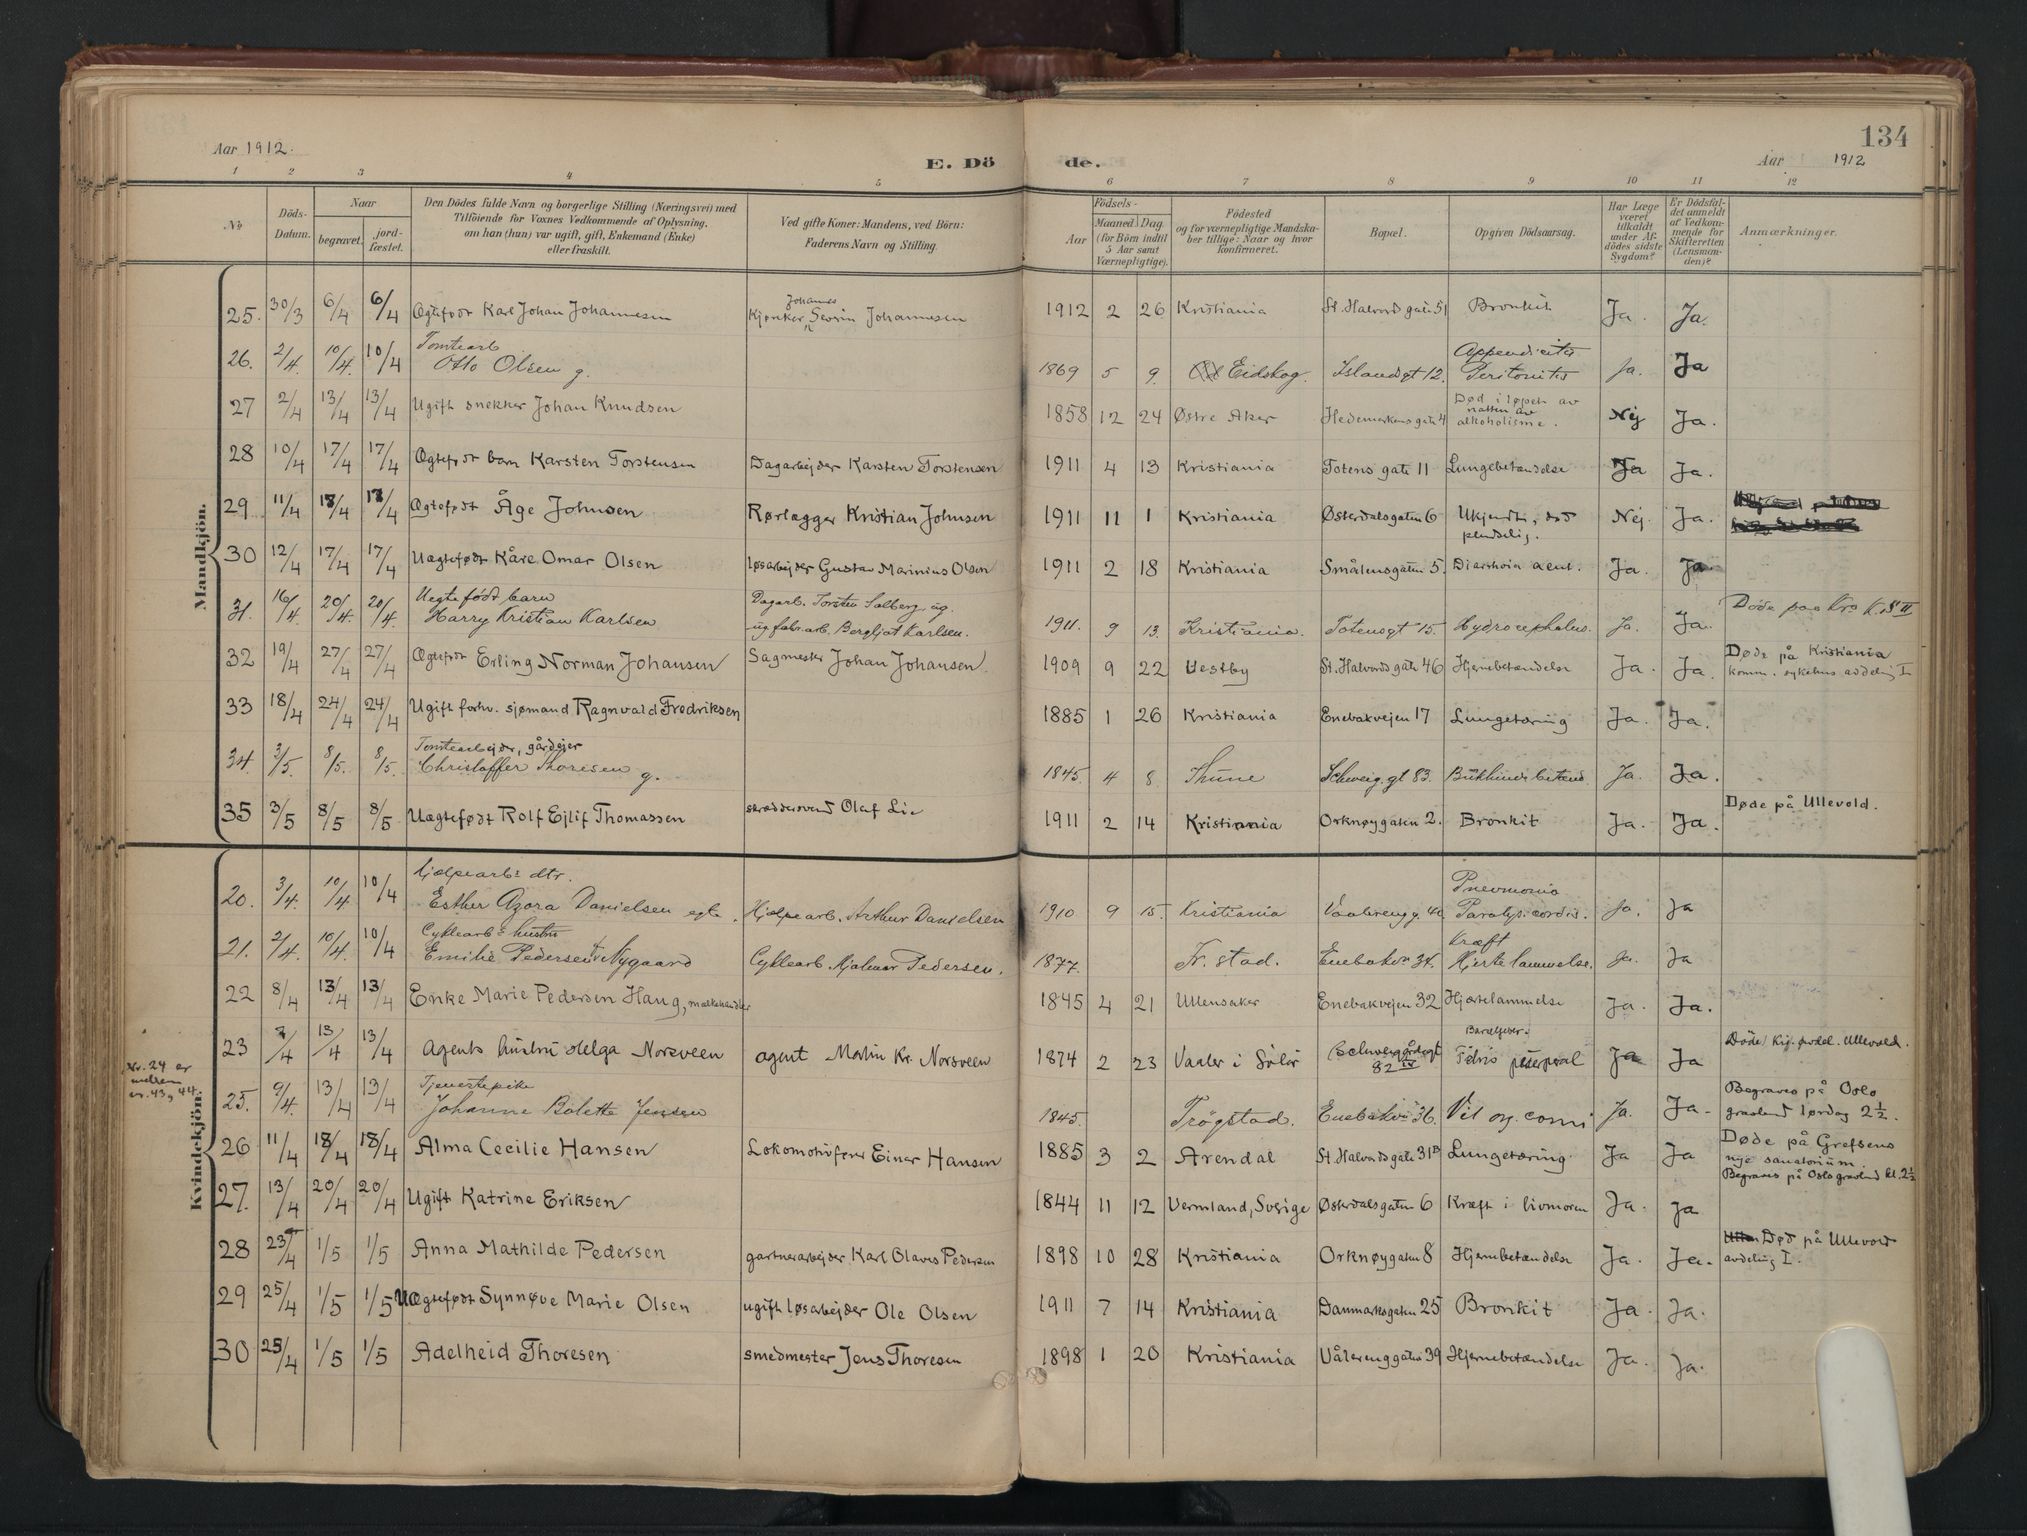 134
Aar 1912.
E. Dö
de.
Aar 1912
1 2 3 4 5 6 7 8 9 10 11 12
№
Döds-Datum.
Naar
begravet.
jord-fæstet.
Den Dödes fulde Navn og borgerlige Stilling (Næringsvei) med
Tilföiende for Voxnes Vedkommende af Oplysning,
om han (hun) var ugift, gift, Enkemand (Enke)
eller fraskilt.
Ved gifte Koner: Mandens, ved Börn:
Faderens Navn og Stilling.
Födsels-
Aar
Maaned
Dag.
(for Börn indtil
5 Aar samt
Værnepligtige).
Födested
og for værnepligtige Mandska-
ber tillige: Naar og hvor
konfirmeret.
Bopæl.
Opgiven Dödsaarsag.
Har Læge
været
tilkaldt
under Af-
dödes sidste
Sygdom?
Er Dödsfal-
det anmeldt
af Vedkom-
mende for
Skifteretten
(Lensman-
den)?
Anmærkninger.
Mandkjön.
Johannes
25. 30/3 6/4 6/4 Ogtefødt Karl Johan Johannesen Kjørker Severin Johannesen 1912 2 26 Kristiania St. Halvords gate 51 Bronkit Ja. Ja.
Tomtearb Appendicitis
26. 2/4. 10/4. 10/4 Otto Olsen g. 1869 5 9. Eidskog. Islandsgt 12. Peritonitis Ja. Ja
Død i løpet av
natten av
27 2/4 13/4 13/4 Ugift snekker Johan Knudsen 1858 12 24 Østre Aker Hedemarkens gate 4 alkoholisme. Nej Ja.
28 10/4 17/4 17/4 Ogtefødt barn Karsten Torstensen Dagarbejder Karsten Torstensen 1911 4 13 Kristiania Totens gate 11 Lungebetændelse Ja Ja.
29 11/4 18/4 18/4 Ogtefødt Åge Johnsen Rørlægger Kristian Johnsen 1911 11 1 Kristiania Østerdalsgaten 6 Ukjendt, død Nej. Ja.
pludselig.
30 12/4 17/4 17/4 Uægtefødt Kåre Omar Olsen løsarbejder Gustav Marinius Olsen 1911 2 18 Kristiania Smålensgaten 5. Diarrhoia acut. Ja. Ja.
Uegte født barn Dagarb. Torsten Solberg ug. Döde paa Kra K. S II
31. 16/4. 20/4. 20/4. Harry Kristian Karlsen ug fabr.arb. Bergljot Karlsen. 1911. 9 13. Kristiania. Totensgt 15. Hydrocephalus. Ja. Ja.
32 19/4 27/4 27/4 Ogtefødt Erling Norman Johansen Sagmester Johan Johansen. 1909 9 22 Vestby St. Halvords gate 46 Hjernebetændelse Ja. Ja. Døde på Kristiania
komm. sykehus avdeling I
33 18/4 24/4 24/4 Ugift forhv. sjømand Ragnvald Fredriksen 1885 1 26 Kristiania Enebakvejen 17 Lungetæring Ja. Ja.
Tomtearbejder, gårdejer
34. 3/5. 8/5. 8/5. Christoffer Thoresen g. 1845. 4 8. Schweig.gt 83. Ja. Ja.
35 3/5 8/5 8/5 Uægtefødt Rolf Ejlif Thomassen skræddersvend Olaf Lie 1911 2 14 Kristiania Orknøygaten 2. Bronkit Ja. Ja. Døde på Ullevold.
Kvindekjön.
hjælpearb: dtr. Pnevmonia
20. 3/4. 10/4 10/4 Esther Azora Danielsen egte. Hjælpearb. Arthur Danielsen 1910 9 15. Kristiania Vaalereng g. 40 Paralys. cordis. Ja. Ja
Cyklearb: hustru Kræft
21. 2/4. 10/4. 10/4 Emilie Pedersen f. Nygaard Cyklearb. Hjalmar Pedersen. 1877. Fr. stad. Enebakv. 34. Hjertelammelse. Ja. Ja
22 8/4 13/4 13/4 Enke Marie Pedersen Haug, melkehandler 1845 4 21 Ullensaker Enebakvejen 32 Hjertelammelse Ja. Ja.
Barselfeber.
23 7/4 13/4 13/4 Agents hustru Helga Norsveen agent Martin Kr. Norsveen 1874 2 23 Vaaler i Solör Schweigårdsgt 82 IV Febris puerperal Ja Ja Döde Kir. avdel. Ullevold.
Nr. 24 er
mellem
nr. 43 og 44.
Tjenestepike Begraves på Oslo
25. 9/4. 13/4 13/4 Johanne Bolette Jensen 1845. Trögstad. Enebakv. 36. Vit. org. cordis Ja. Ja. gravlund lørdag 2½.
26 11/4 18/4 18/4 Alma Cecilie Hansen Lokomotivfører Einar Hansen 1885 3 2 Arendal St. Halvords gate 31B Lungetæring. Ja Ja Døde på Grefsens
nye sanatorium.
Begraves på Oslo gravlund kl. 2½
27. 13/4 20/4 20/4 Ugift Katrine Eriksen 1844 11 12 Vermland, Sverige Østerdalsgaten 6 Kræft i livmoren Ja. Ja
28 23/4 1/5 1/5 Anna Mathilde Pedersen gartnerarbejder Karl Olaves Pedersen 1898 10 28 Kristiania Orknøygaten 8 Hjernebetændelse Ja. Ja. Død på Ullevold
avdeling I.
29 25/4 1/5 1/5 Uægtefødt Synnøve Marie Olsen ugift løsarbejder Ole Olsen 1911 7 14 Kristiania Danmarksgaten 25 Bronkit Ja. Ja.
30 25/4 1/5 1/5 Adelheid Thoresen smedmester Jens Thoresen 1898 1 20 Kristiania Vålerenggaten 39 Hjernebetændelse Ja. Ja.